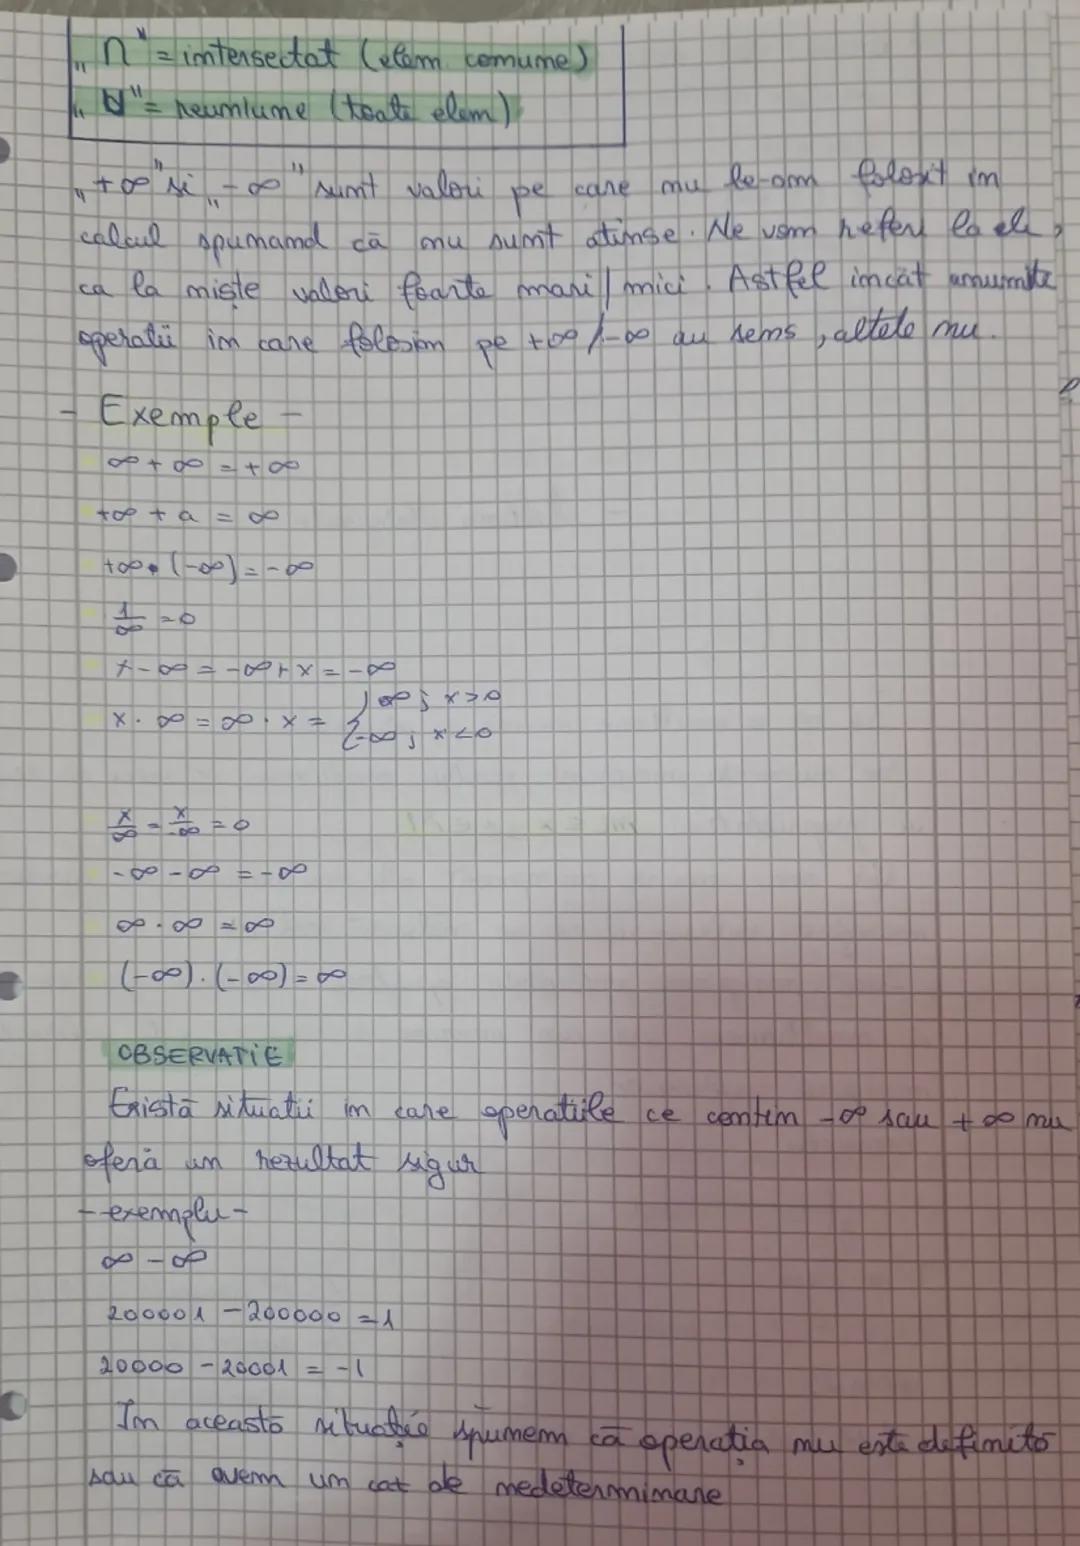 „∩" = intersectat (elem. comune)
„U" = reuniune (toate elem)
„+∞" si „-∞" sunt valori pe care nu le-am folosit in
calcul spunand că nu sunt atinse. Ne vom referi la ele,
ca la niște valori foarte mari/mici. Astfel incăt anumite
operatii in care folosim pe +∞/-∞ au sens, altele nu.
- Exemple -
∞ + ∞ = +∞
+∞ + a = ∞
+∞ · (-∞) = -∞
1/∞ = 0
x - ∞ = -∞ + x = -∞
x · ∞ = ∞ · x = { ∞ ; x > 0
-∞ ; x < 0
x/∞ = x/-∞ = 0
-∞ - ∞ = -∞
∞ · ∞ = ∞
(-∞) · (-∞) = ∞
OBSERVATIE
Există situatii in care operatiile ce contin -∞ sau +∞ nu
oferă un rezultat sigur
- exemplu -
∞ - ∞
200001 - 200000 = 1
20000 - 20001 = -1
In aceasta situație spunem că operația nu este definită
sau că avem un caz de nedeterminare